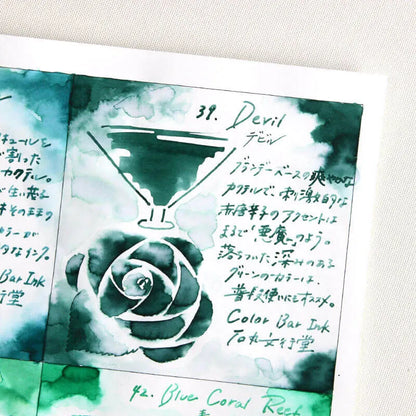 39. Devil
デビル
ブランデーベースの爽やかな
カクテルで、刺激的な
赤唐辛子のアクセントは
まるで「悪魔」のよう。
落ちついた深みのある
グリーンのカラーは、
普段使いにもオススメ。
Color Bar Ink
TAG文行堂
キュールを
で割った
カクテル。
そのままの
カラーが
的なインク。
Bar Ink
行堂
42. Blue Coral Reef